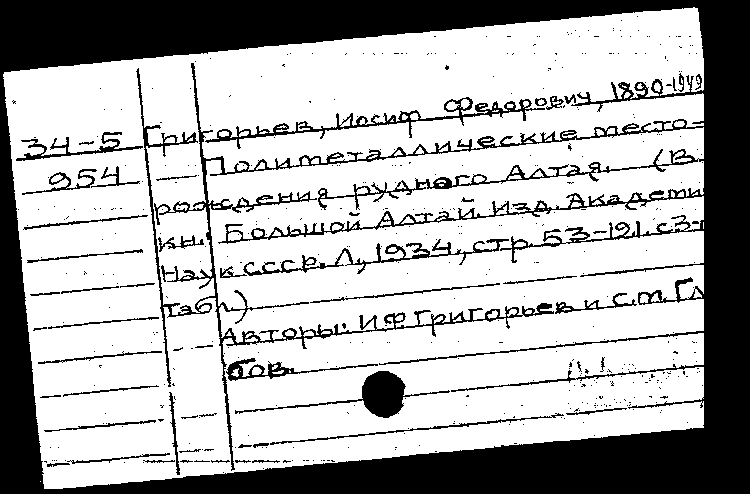 34-5 Григорьев, Иосиф Федорович, 1890-1949
954 Полиметаллические место-
рождения рудного Алтая. (В
кн.: Большой Алтай. Изд. Академи
Наук СССР. Л., 1934, стр. 53-191. с 3-
табл)
Авторы: И Ф Григорьев и С.М. Гл
бов.